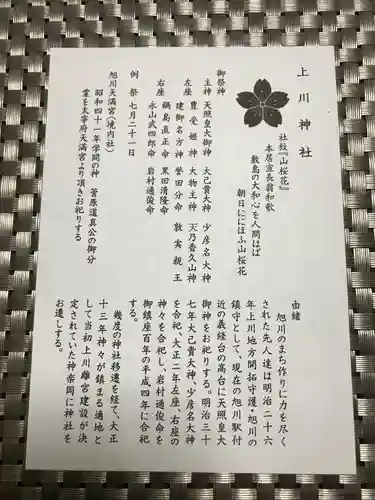 上川神社
社紋『山桜花』
本居宣長翁和歌
敷島の大和心を人問はば
朝日ににほふ山桜花
御祭神
主神 天照皇大御神 大己貴大神 少彦名大神
左座 豊受姫神 大物主神 天乃香久山神
建御名方神 誉田分命 敦実親王
右座 鍋島直正命 黒田清隆命
永山武四郎命 岩村通俊命
例祭 七月二十一日
旭川天満宮(境内社)
昭和四十一年学問の神 菅原道真公の御分
霊を太宰府天満宮より頂きお祀りする
由緒
旭川のまち作りに力を尽く
された先人達は明治二十六
年上川地方開拓守護・旭川の
鎮守として、現在の旭川駅付
近の義経台の高台に天照皇大
御神をお祀りする。明治三十
七年大己貴大神、少彦名大神
を合祀、大正二年左座、右座の
神々を合祀し、岩村通俊命を
御鎮座百年の平成四年に合祀
する。
幾度の神社移遷を経て、大正
十三年神々が鎮まる適地と
して当初上川離宮建設が決
定されていた神楽岡に神社を
お遷しする。